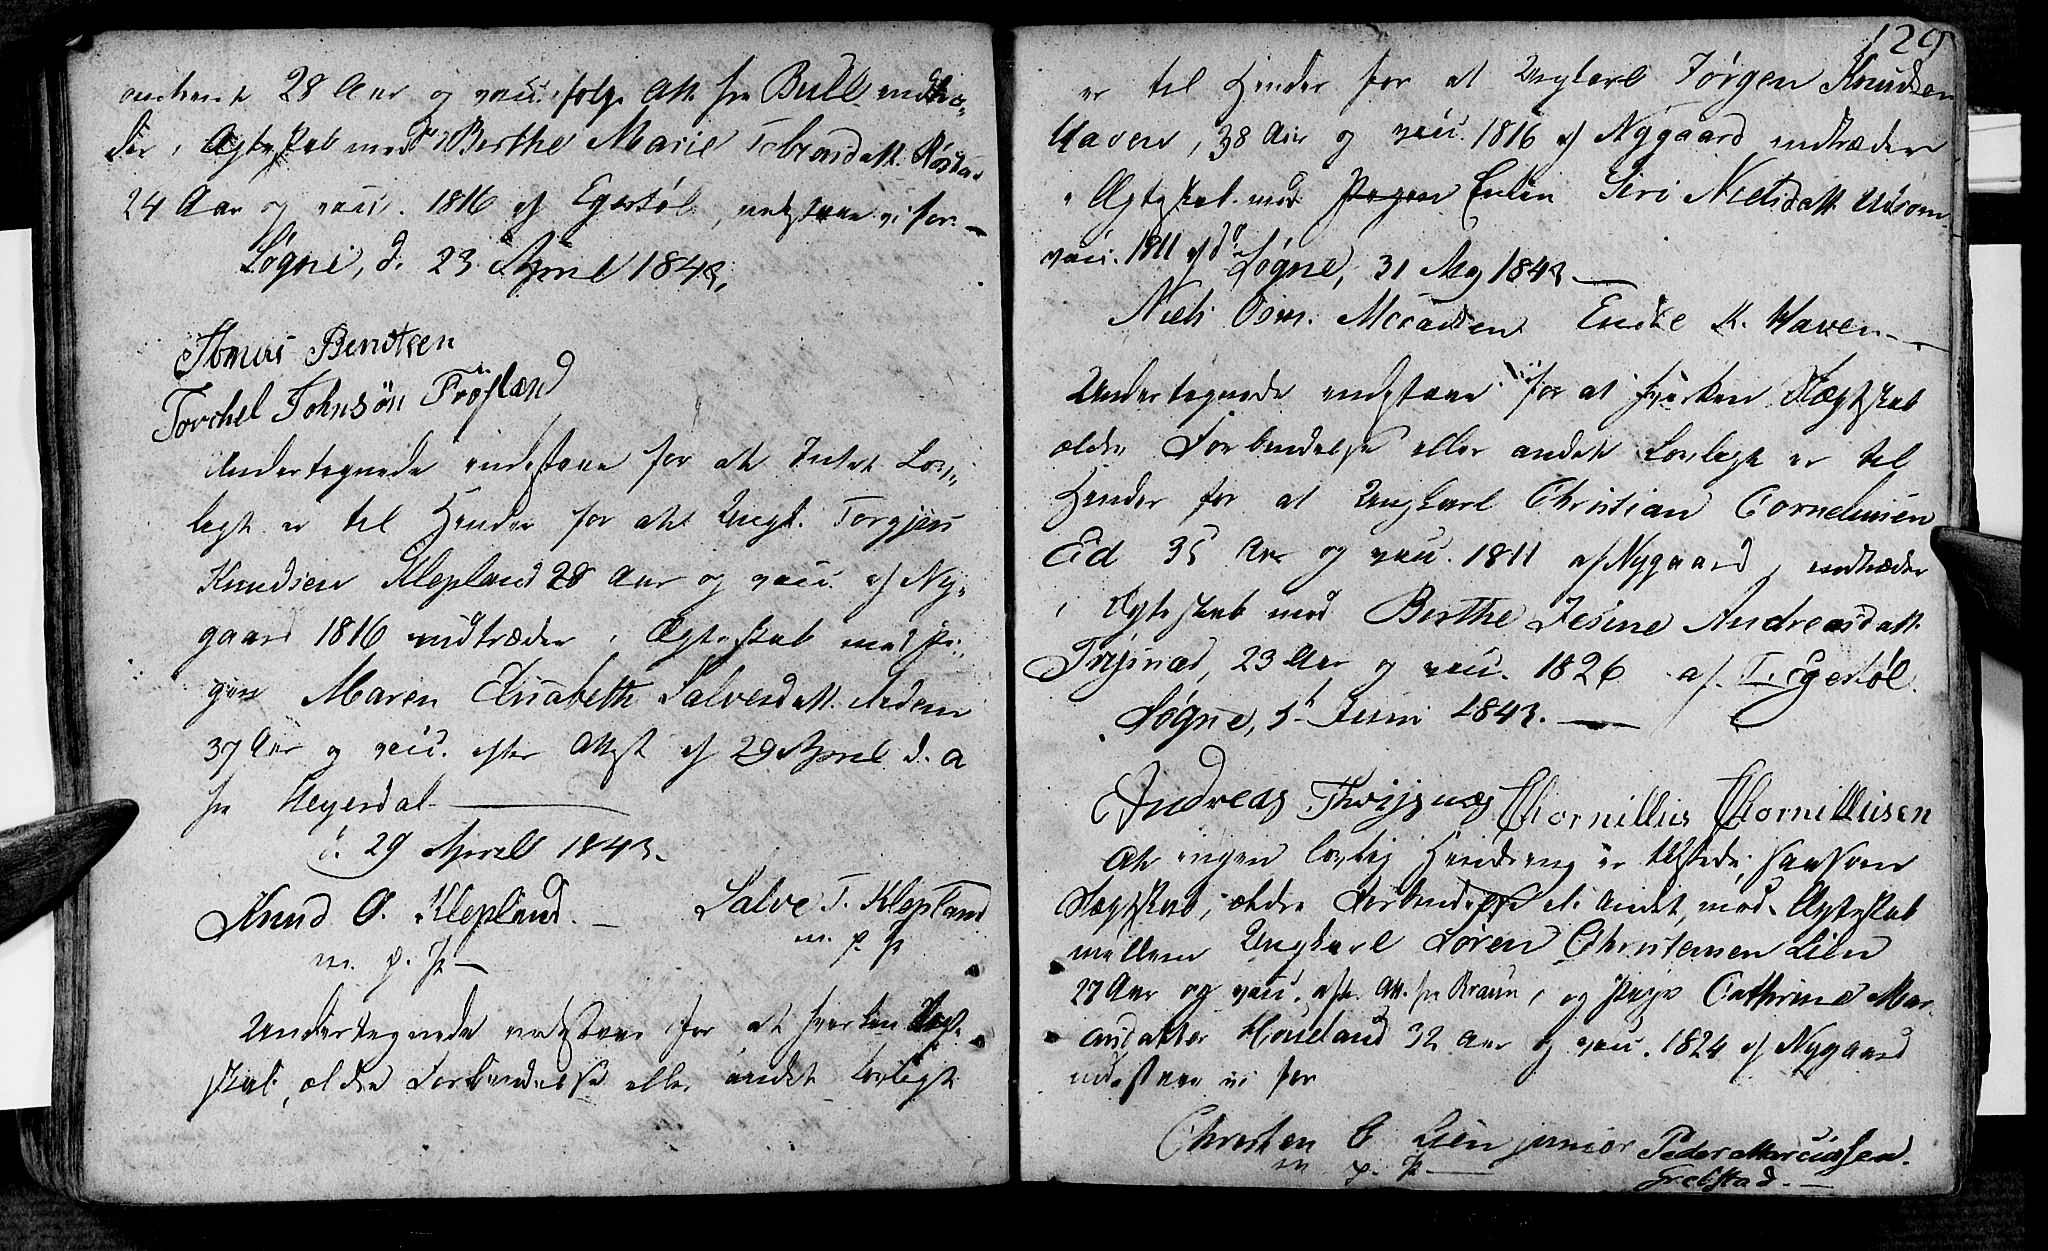 28 Aar og vacc. følge Att. fra Bull indtræ-
der i Ægteskab med Berthe Marie Tobiasdatt.
24 Aar og vacc. 1816 af Egestøl, indestaae vi for.
Søgne, d. 23 April 1843,
Tomas Bendtsen
Torchel Johnsøn Frøsland
Undertegnede indestaae for at Intet Lov-
ligt er til Hinder for at Ungk. Torgjus
Knudsen Klepland 28 Aar og vacc. af Ny-
gaard 1816 indtræder i Ægteskab med Pi-
gen Maren Elisabeth Salvesdatt.
37 Aar og vacc. efter Attest af 29 April d. A
fra Heyerdal
d. 29 April 1843.
Knud O. Klepland. Salve T. Klepland
m. p. P. m. p. P
Undertegnede indestaae for at hverken Slægt-
skab, ældre Forbindelse eller andet lovligt
129
er til Hinder for at Ungkarl Jørgen Knudsen
Haven, 38 Aar og vacc. 1816 af Nygaard indtræder
i Ægteskab med Pigen Enken Siri Nielsdatt.
vacc. 1811 af do Søgne, 31 May 1843
Niels Osm. Encke K. Haven
Undertegnede indestaae vi for at hverken Slægtskab
ældre Forbindelse eller andet Lovligt er til
Hinder for at Ungkarl Christian Corneliusen
Eid 35 Aar og vacc. 1811 af Nygaard, indtræder
i Ægteskab med Berthe Jesine Andreasdatt.
Trysnæs, 23 Aar og vacc. 1826 af Egestøl.
Søgne, 5t Juni 1843.
Andreas Thrysnæs Cornillius Cornilliusen
At ingen lovlig Hindring er tilstede, saasom
Slægtskab, ældre Forbindelse el. Andet, mod Ægteskab
mellem Ungkarl Søren Christensen Lien
27 Aar og vacc. efter Att. fra Braun, og Pige Cathrine Mar-
cusdatter Houeland 32 Aar og vacc. 1824 af Nygaard
indestaae vi for
Christen O Lien junior Peder Marcussen.
m p. P Grebstad.